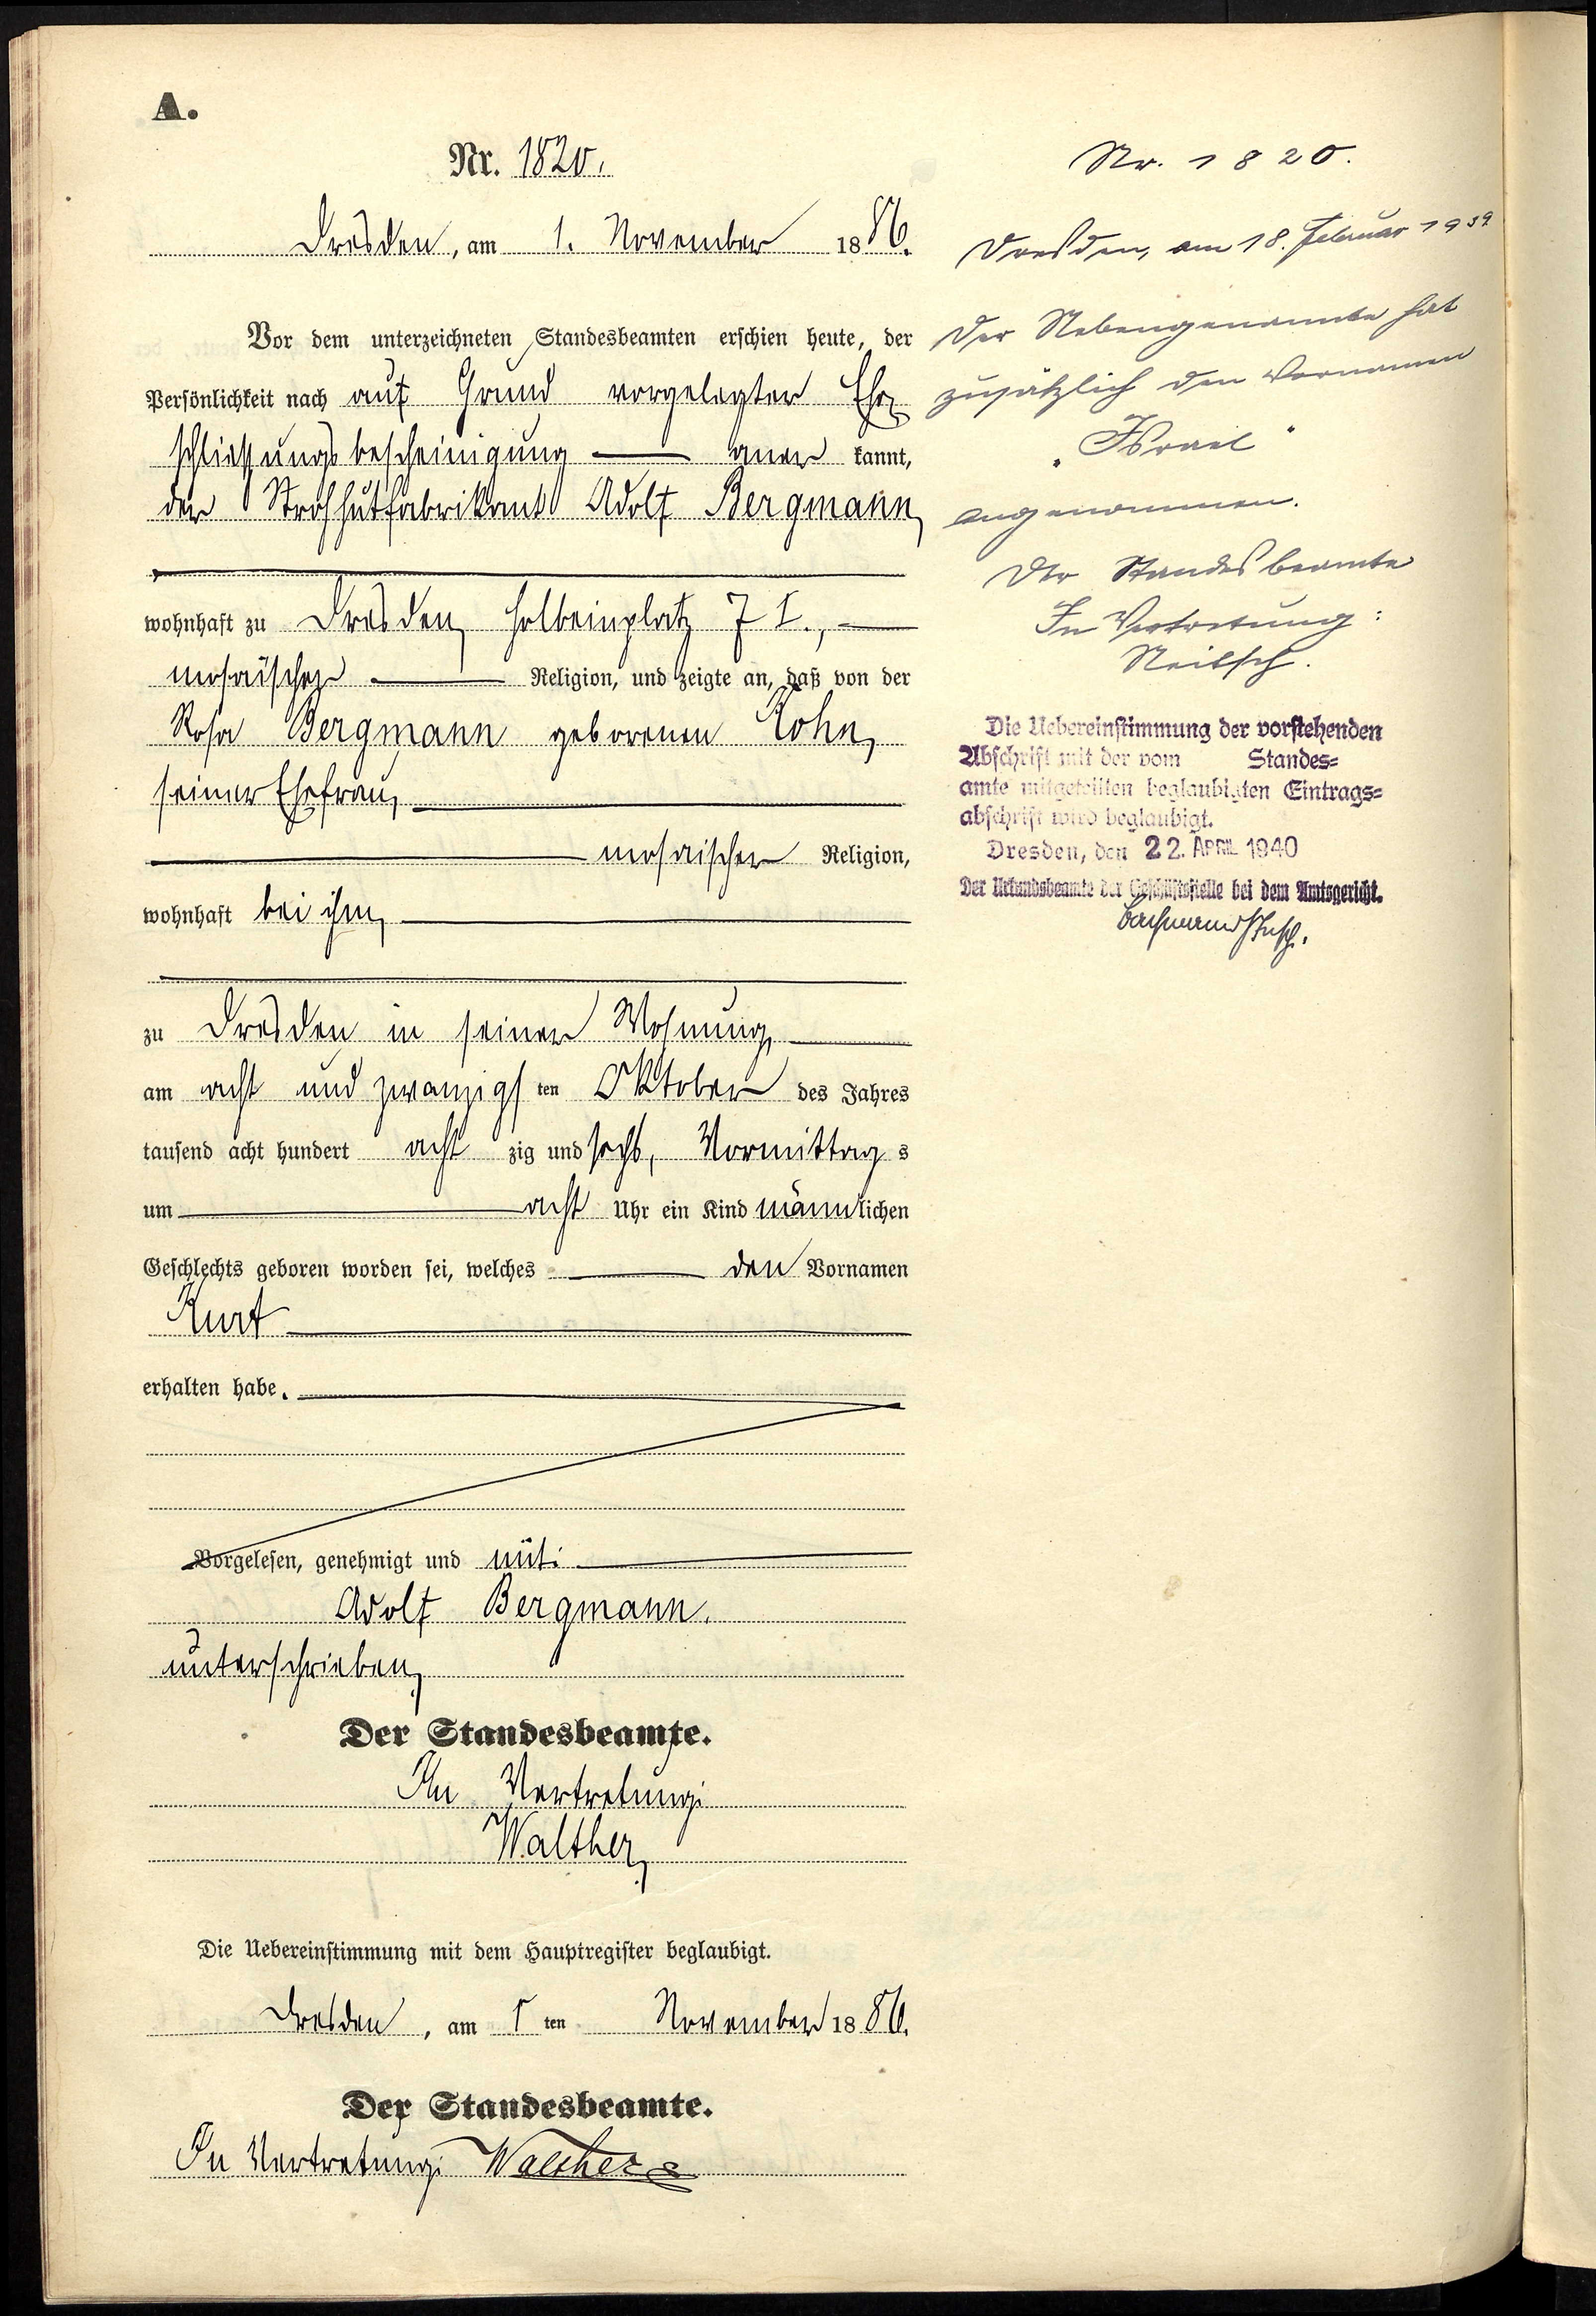 A.
Nr. 1820.
Dresden, am 1. November 1886.
Vor dem unterzeichneten Standesbeamten erschien heute, der
Persönlichkeit nach auf Grund vorgelegter Ehe¬
schliessungsbescheinigung aner kannt,
der Strohhutfabrikant Adolf Bergmann,
wohnhaft zu Dresden, Holbeinplatz 7 I.,
mosaischer Religion, und zeigte an, daß von der
Rosa Bergmann geborenen Kohn,
seiner Ehefrau,
mosaischer Religion,
wohnhaft bei ihm,
zu Dresden in seiner Wohnung,
am acht und zwanzigs ten Oktober des Jahres
tausend acht hundert acht zig und sechs, Vormittag s
um acht Uhr ein Kind männlichen
Geschlechts geboren worden sei, welches den Vornamen
Kurt
erhalten habe.
Vorgelesen, genehmigt und mit:
Adolf Bergmann.
unterschrieben.
Der Standesbeamte.
In Vertretung:
Walther.
Die Uebereinstimmung mit dem Hauptregister beglaubigt.
Dresden, am 1 ten November 1886.
Der Standesbeamte.
In Vertretung: Walther
Nr. 1820.
Dresden, am 18. Februar 1939
Der Nebengenannte hat
zusätzlich den Vornamen
„Israel"
angenommen.
Der Standesbeamte
In Vertretung:
Neitsch.
Die Uebereinstimmung der vorstehenden
Abschrift mit der vom Standes=
amte mitgeteilten beglaubigten Eintrags=
abschrift wird beglaubigt.
Dresden, den 22. APRIL 1940
Der Urkundsbeamte der Geschäftsstelle bei dem Amtsgericht.